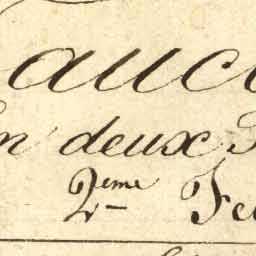 auc
n deux
2eme Fe